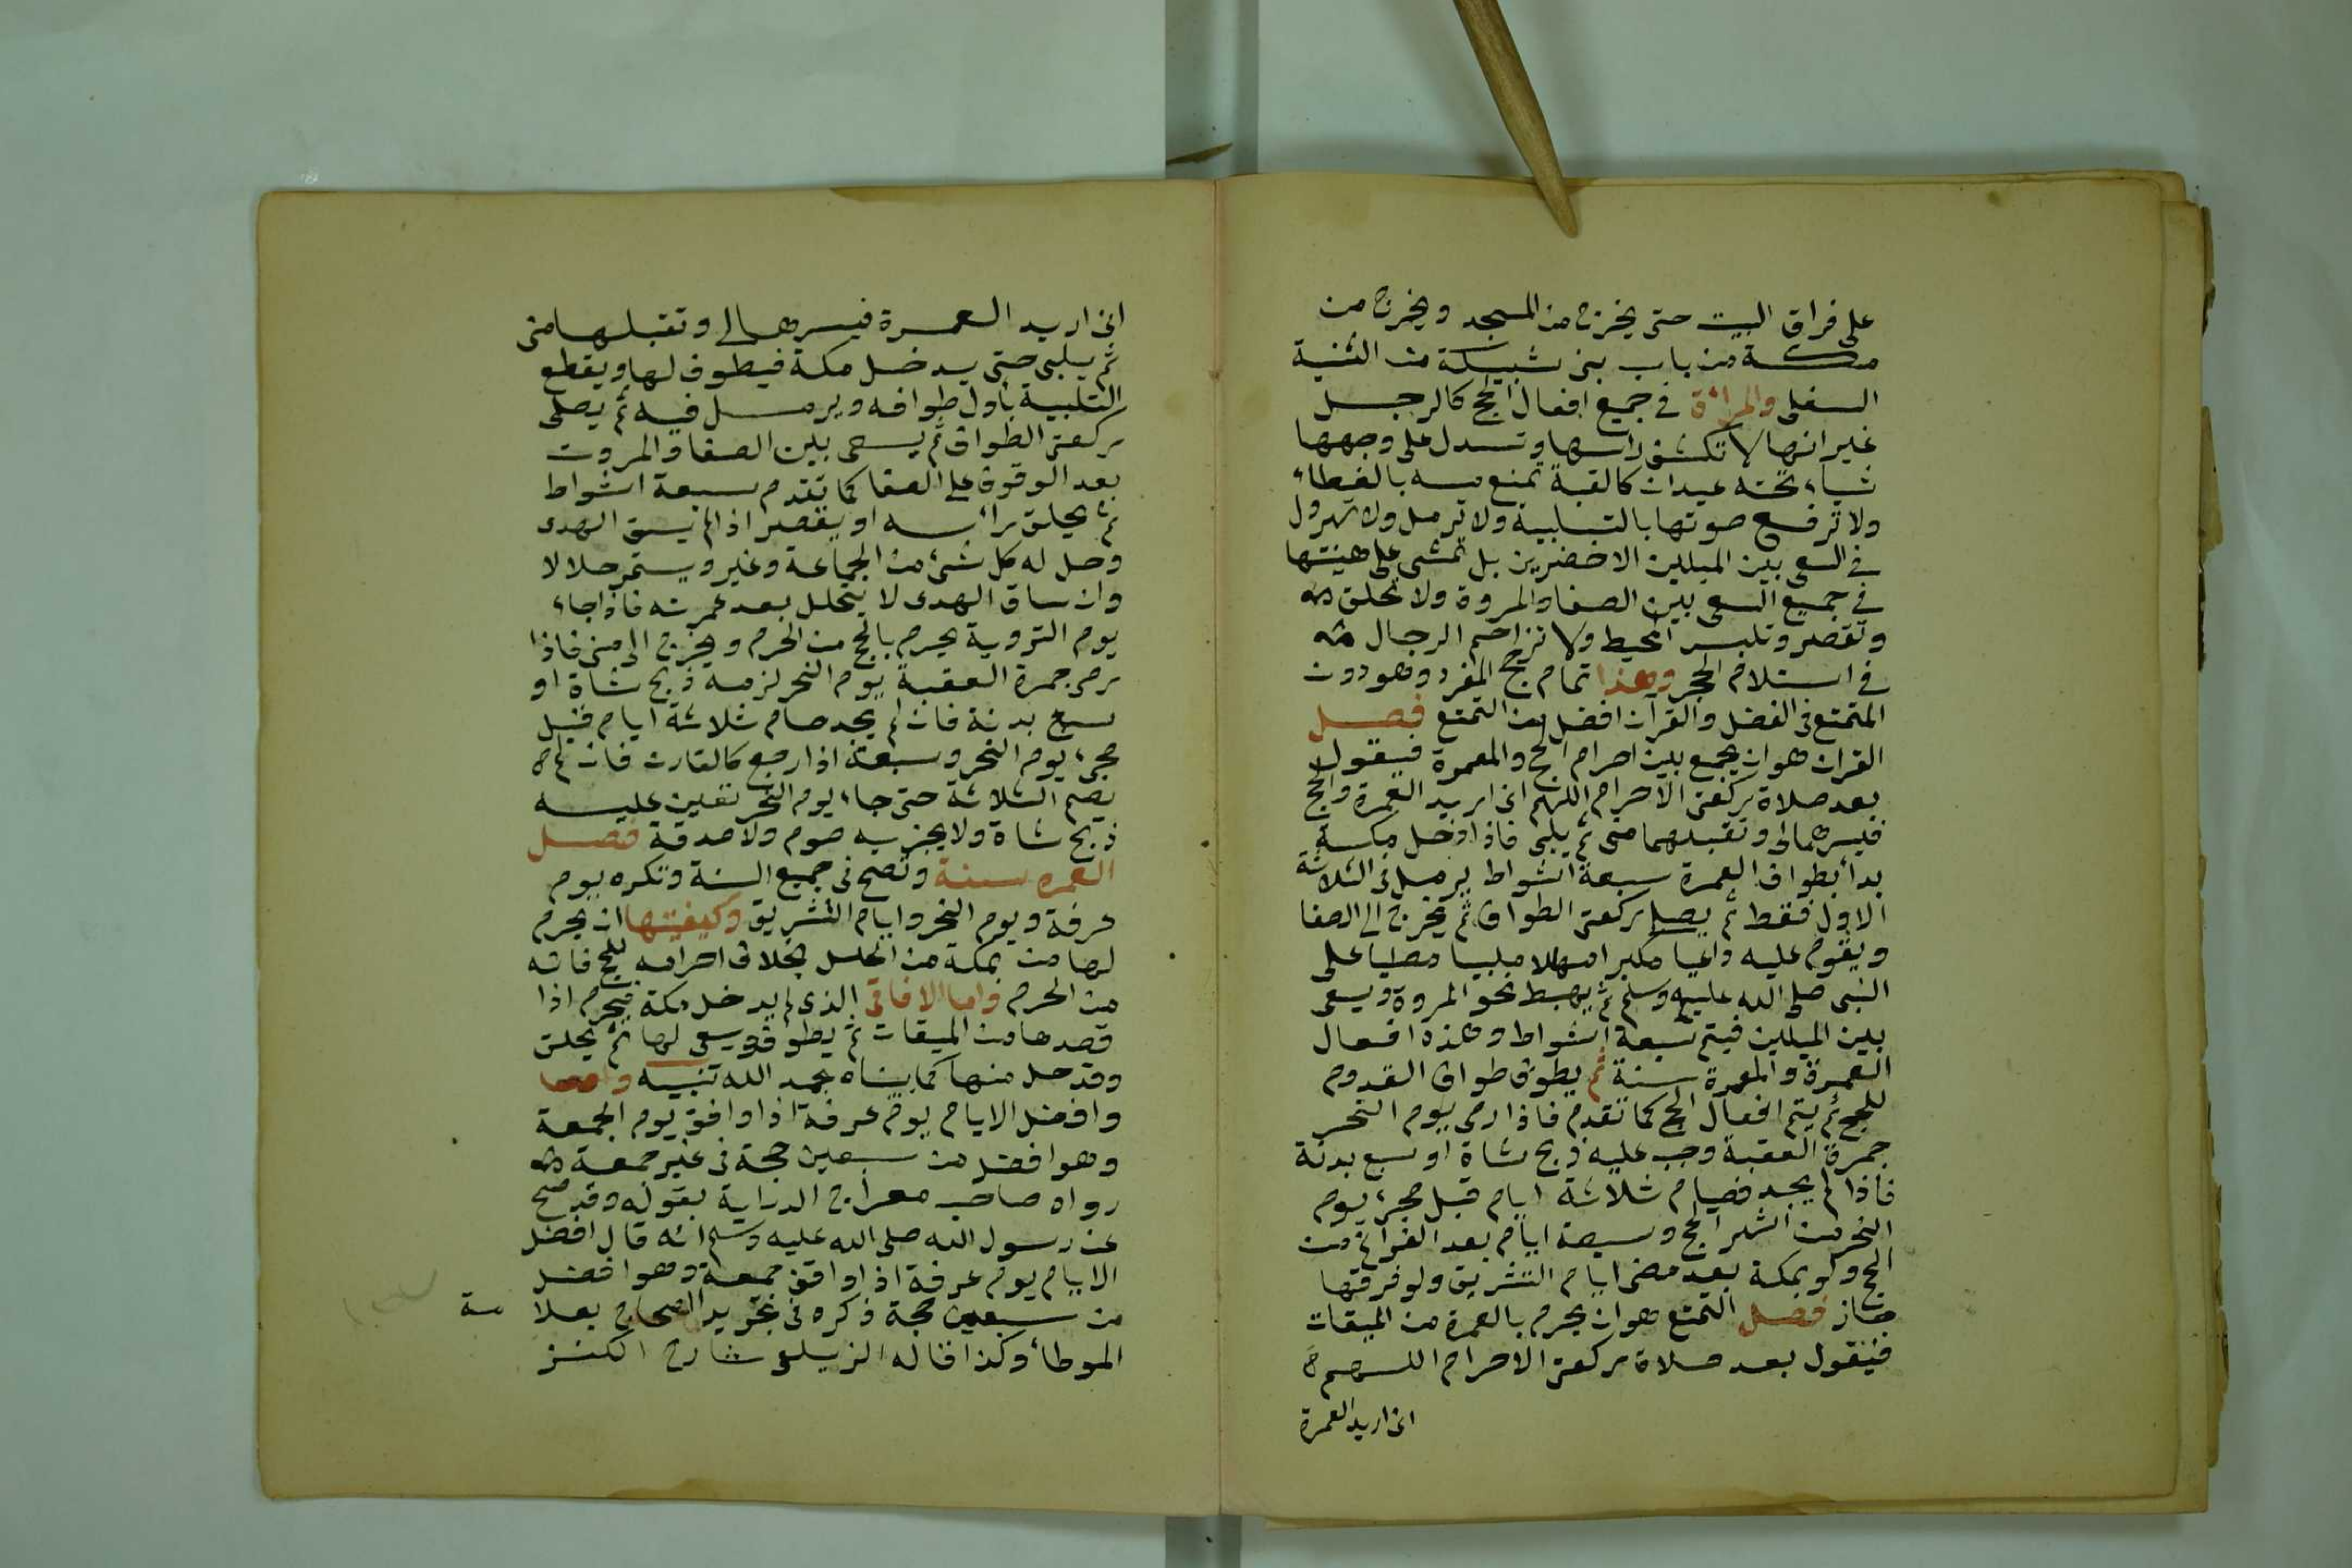 على فراق البيت حتى يخرج من المسجد ويخرج من
مكة من باب بنى شبيكة من الثنية
السفلى والمرأة في جميع افعال الحج كالرجل
غير انها لا تكشف راسها وتسدل على وجهها
شياء تحته عيدان كالقبة تمنع مسه بالغطاء
ولا ترفع صوتها بالتلبية ولا ترمل ولا تهرول
في السعى بين الميلين الاخضرين بل تمشى على هينتها
في جميع السعى بين الصفا والمروة ولا تحلق
وتقصر وتلبس المخيط ولا تزاحم الرجال
في استلام الحجر وهذا تمام حج المفرد وهو دون
المتمتع في الفضل والقرآن افضل من التمتع فصل
القران هو ان يجمع بين احرام الحج والعمرة فيقول
بعد صلاة ركعتى الاحرام اللهم انى اريد العمرة والحج
فيسرهما لى وتقبلهما منى ثم يلبى فاذا دخل مكة
بدأ بطواف العمرة سبعة اشواط يرمل في الثلاثة
الاول فقط ثم يصلى ركعتى الطواف ثم يخرج الى الصفا
ويقوم عليه داعيا مكبرا مهللا ملبيا مصليا على
النبى صلى الله عليه وسلم ثم يهبط نحو المروة ويسعى
بين الميلين فيتم سبعة اشواط وهذه افعال
العمرة والعمرة سنة ثم يطوف طواف القدوم
للحج ثم يتم افعال الحج كما تقدم فاذا رمى يوم النحر
جمرة العقبة وجب عليه ذبح شاة او سبع بدنة
فاذا لم يجد فصيام ثلاثة ايام قبل مجىء يوم
النحر من اشهر الحج وسبعة ايام بعد الفراغ من
الحج ولو بمكة بعد مضى ايام التشريق ولو فرقها
جاز فصل التمتع هو ان يحرم بالعمرة من الميقات
فيقول بعد صلاة ركعتى الاحرام اللهم
انى اريد العمرة
انى اريد العمرة فيسرها لى وتقبلها منى
ثم يلبى حتى يدخل مكة فيطوف لها ويقطع
التلبية بأول طوافه ويرمل فيه ثم يصلى
ركعتى الطواف ثم يسعى بين الصفا والمروة
بعد الوقوف على الصفا كما تقدم سبعة اشواط
ثم يحلق رأسه او يقصر اذا لم يسق الهدى
وحل له كل شىء من الجماعة وغير ويستمر حلالا
وان ساق الهدى لا يتحلل بعد عمرته فاذا جاء
يوم التروية يحرم بالحج من الحرم ويخرج الى منى فاذا
رمى جمرة العقبة يوم النحر لزمه ذبح شاة او
سبع بدنة فان لم يجد صام ثلاثة ايام قبل
مجىء يوم النحر وسبعة اذا رجع كالقارن فان لم
يصم الثلاثة حتى جاء يوم النحر تعين عليه
ذبح شاة ولا يجزيه صوم ولا صدقة فصل
العمره سنة وتصح في جميع السنة وتكره يوم
عرفة ويوم النحر وايام التشريق وكيفيتها ان يحرم
لها من بمكة من الحل بخلاف احرامه للحج فانه
من الحرم واما الافاقى الذى لم يدخل مكة فيحرم اذا
قصدها من الميقات ثم يطوف ويسعى لها ثم يحلق
وقد حل منها كما بيناه بحمد الله تنبيه
وافضل الايام يوم عرفة اذا وافق يوم الجمعة
وهو افضل من سبعين حجة في غير جمعة
رواه صاحب معراج الدراية بقوله وقد صح
عن رسول الله صلى الله عليه وسلم انه قال افضل
الايام يوم عرفة اذا وافق جمعة وهو افضل
من سبعين حجة ذكره في تجريد الصحاح بعلا مة
الموطأ وكذا قاله الزيلعى شارح الكنز